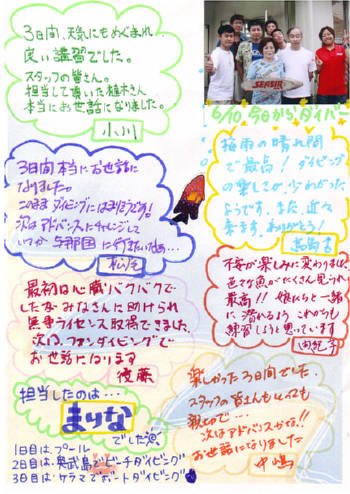 3日間、天気にもめぐまれ、
良い講習でした。
スタッフの皆さん。
担当して頂いた植木さん
本当にお世話になりました。
小川
SEASIR
6/10 今日からダイバー
梅雨の晴れ間
で最高! ダイビング
の楽しさが少しわかった
ようです。また、近々
来ます。ありがとう!
3日間本当にお世話に
なりました。
このままダイビングにはまりそうです!
次はアドバンスにチャレンジして
いつか与那国に行きたいなぁ…
松尾
不安が楽しみに変わりました。
色々な魚がたくさん見られて
最高!! 娘たちと一緒
に潜れるよう これからも
練習しようと思っています
由紀子
最初は心臓バクバクで
したが みなさんに助けられ
無事ライセンス取得できました。
次は、ファンダイビングで
お世話になります
後藤
楽しかった3日間でした。
スタッフの皆さんもとっても
親切で…
次はアドバンスかな!!
お世話になりました
中嶋
担当したのは…
まりな
でした。
1日目は プール
2日目は 奥武島でビーチダイビング
3日目は ケラマでボートダイビング